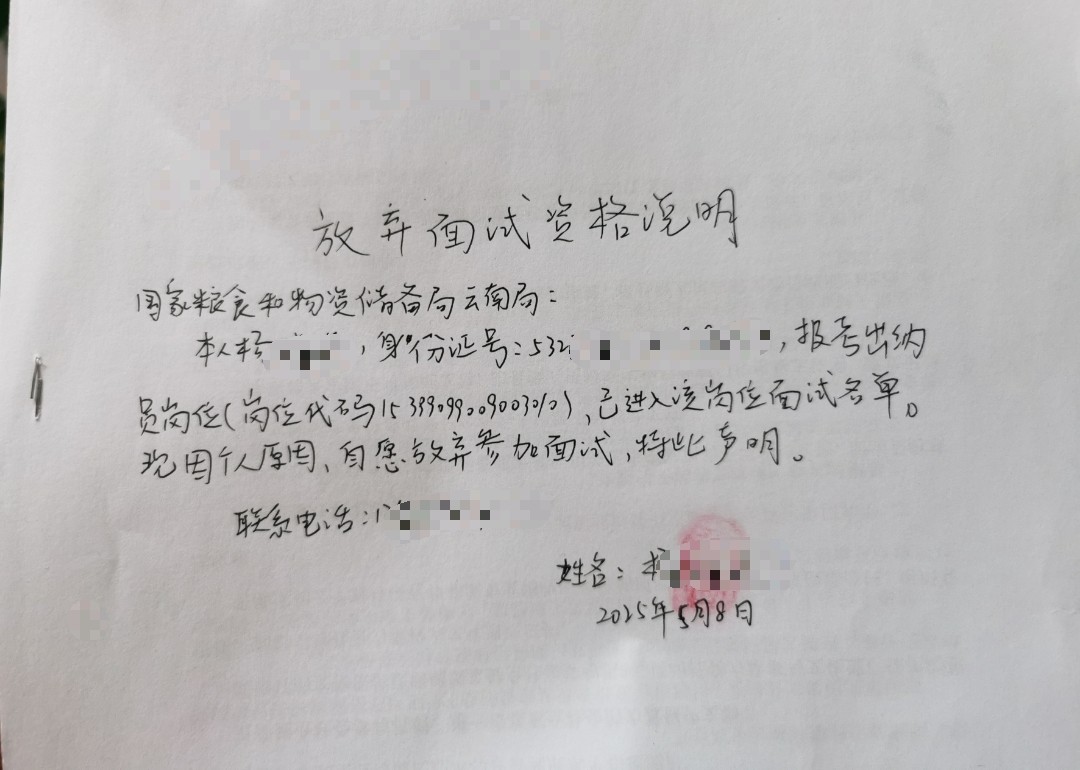 放弃面试资格说明
国家粮食和物资储备局云南局：
本人，身份证号：532，报考出纳
员岗位（岗位代码15399099009003010），已进入该岗位面试名单。
现因个人原因，自愿放弃参加面试，特此声明。
联系电话：1
姓名：
2025年5月8日